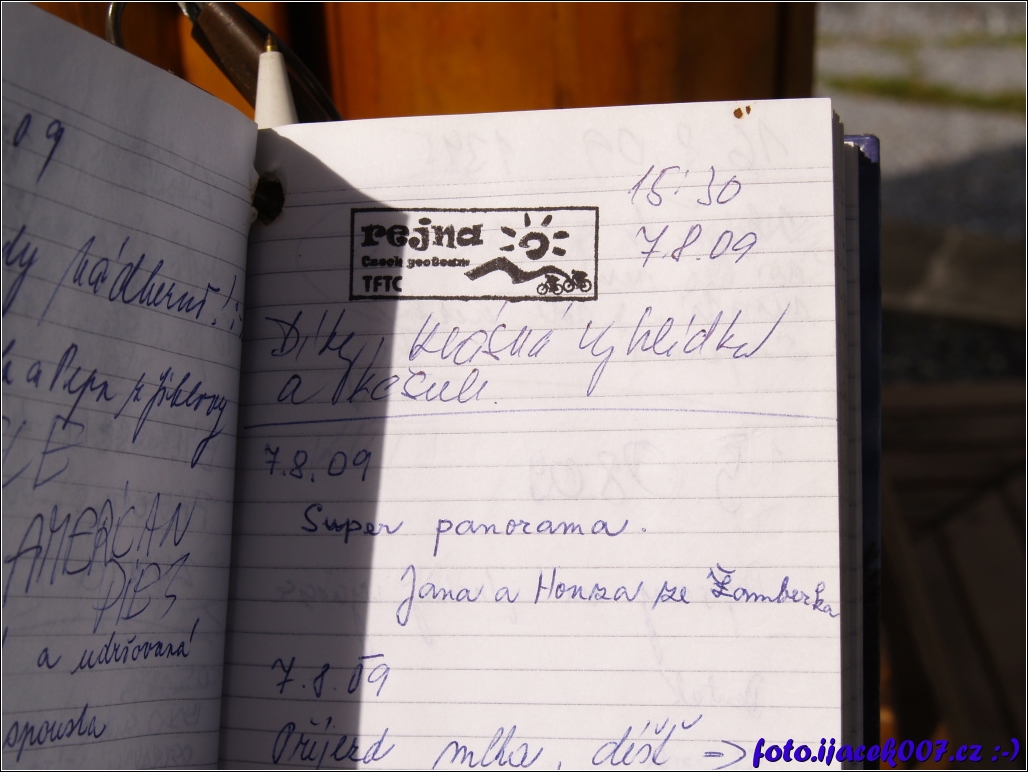 09
nádherné!
a Pepa z Jihlavy
AMERICAN
PIES
a udržovaná
spousta
15:30
7.8.09
rejna
Czech geoSezam
TFTC
Díky, krásná vyhlídka
a kešule.
7.8.09
Super panorama.
Jana a Honza ze Žamberka
7.8.09
Příjezd mlha, déšť =>
foto.ijacek007.cz :-)